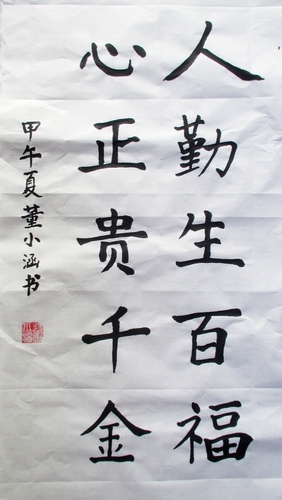 人勤生百福
心正贵千金
甲午夏董小涵书